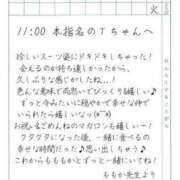 火
11:00 本指名のTちゃんへ
珍しいスーツ姿にドキドキしちゃった!
会えるのが待ち遠しかったから、
久しぶりな感じがしたね..!
色んな意味で両想いでびっくり&嬉しい♪
ずっと今みたいに穏やかで幸せな仲で
いられたら嬉しいな(*^^*)
お祝いもごめんねのマカロンも嬉しい!
クタクタになった後、一緒に食べるの
幸せな時間だった♪思い出しちゃう♪
これからもももかとずっと一緒にいてね♡
ももか先生より